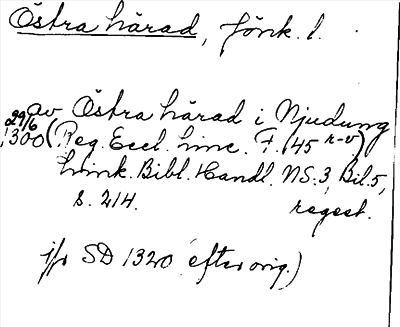 Östra härad, Jönk. l.
av Östra härad i Njudung
29/6
1300 (Reg. Eccl. Linc. F. 145 r-v)
Link. Bibl. Handl. NS. 3, Bil. 5,
s. 214. regest.
jfr SD 1320 efter orig.)